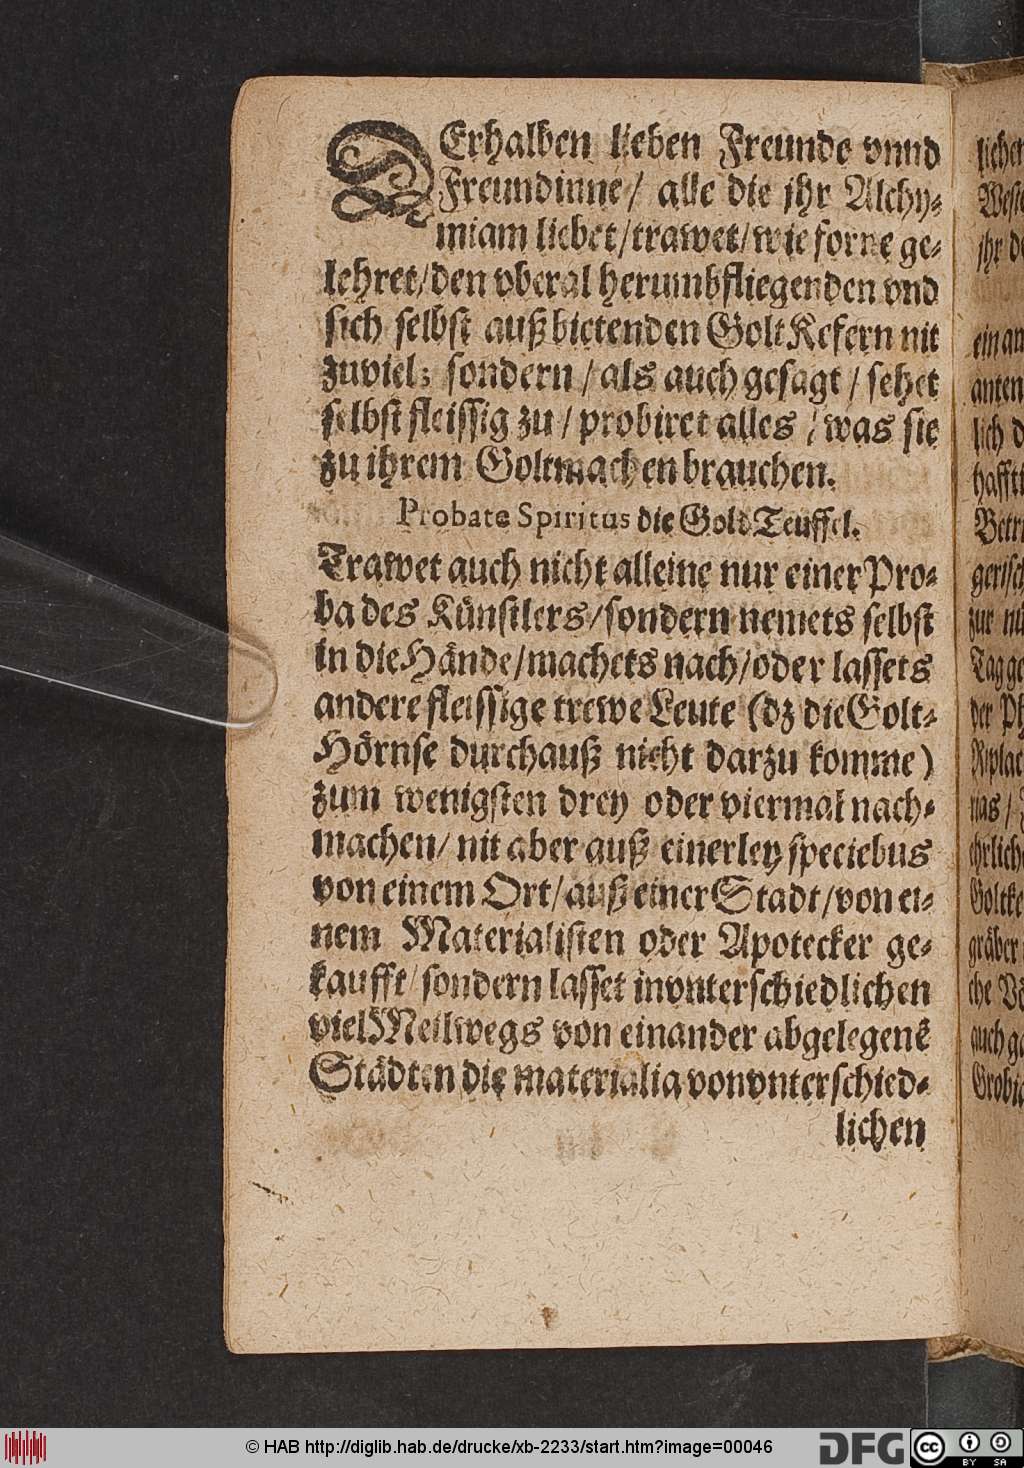 DErhalben lieben Freunde vnnd
Freundinne/ alle die jhr Alchy-
miam liebet/trawet/wie forne ge-
lehret/den vberal herumbfliegenden vnd
sich selbst außbietenden Golt Kefern nit
zuviel; sondern/als auch gesagt/sehet
selbst fleissig zu/probiret alles/was sie
zu ihrem Goltmachen brauchen.
Probate Spiritus die Gold Teuffel.
Trawet auch nicht alleine nur einer Pro-
ba des Künstlers/sondern nemets selbst
in die Hände/machets nach/oder lassets
andere fleissige trewe Leute (dz die Golt-
Hörnse durchauß nicht darzu komme)
zum wenigsten drey oder viermal nach-
machen/nit aber auß einerley speciebus
von einem Ort/auß einer Stadt/von ei-
nem Materialisten oder Apotecker ge-
kaufft/sondern lasset in vnterschiedlichen
viel Meilwegs von einander abgelegenē
Städten die materialia von vnterschied-
lichen
liehen
jhr de
ein an
anten
lich d
haffti
Betri
gerisch
zur nü
Tag ge
der Ph
Riplae
nas/
ehrliche
Goltke
gräber
che Vö
auch ga
Grobia
© HAB http://diglib.hab.de/drucke/xb-2233/start.htm?image=00046
DFG
cc
BY SA